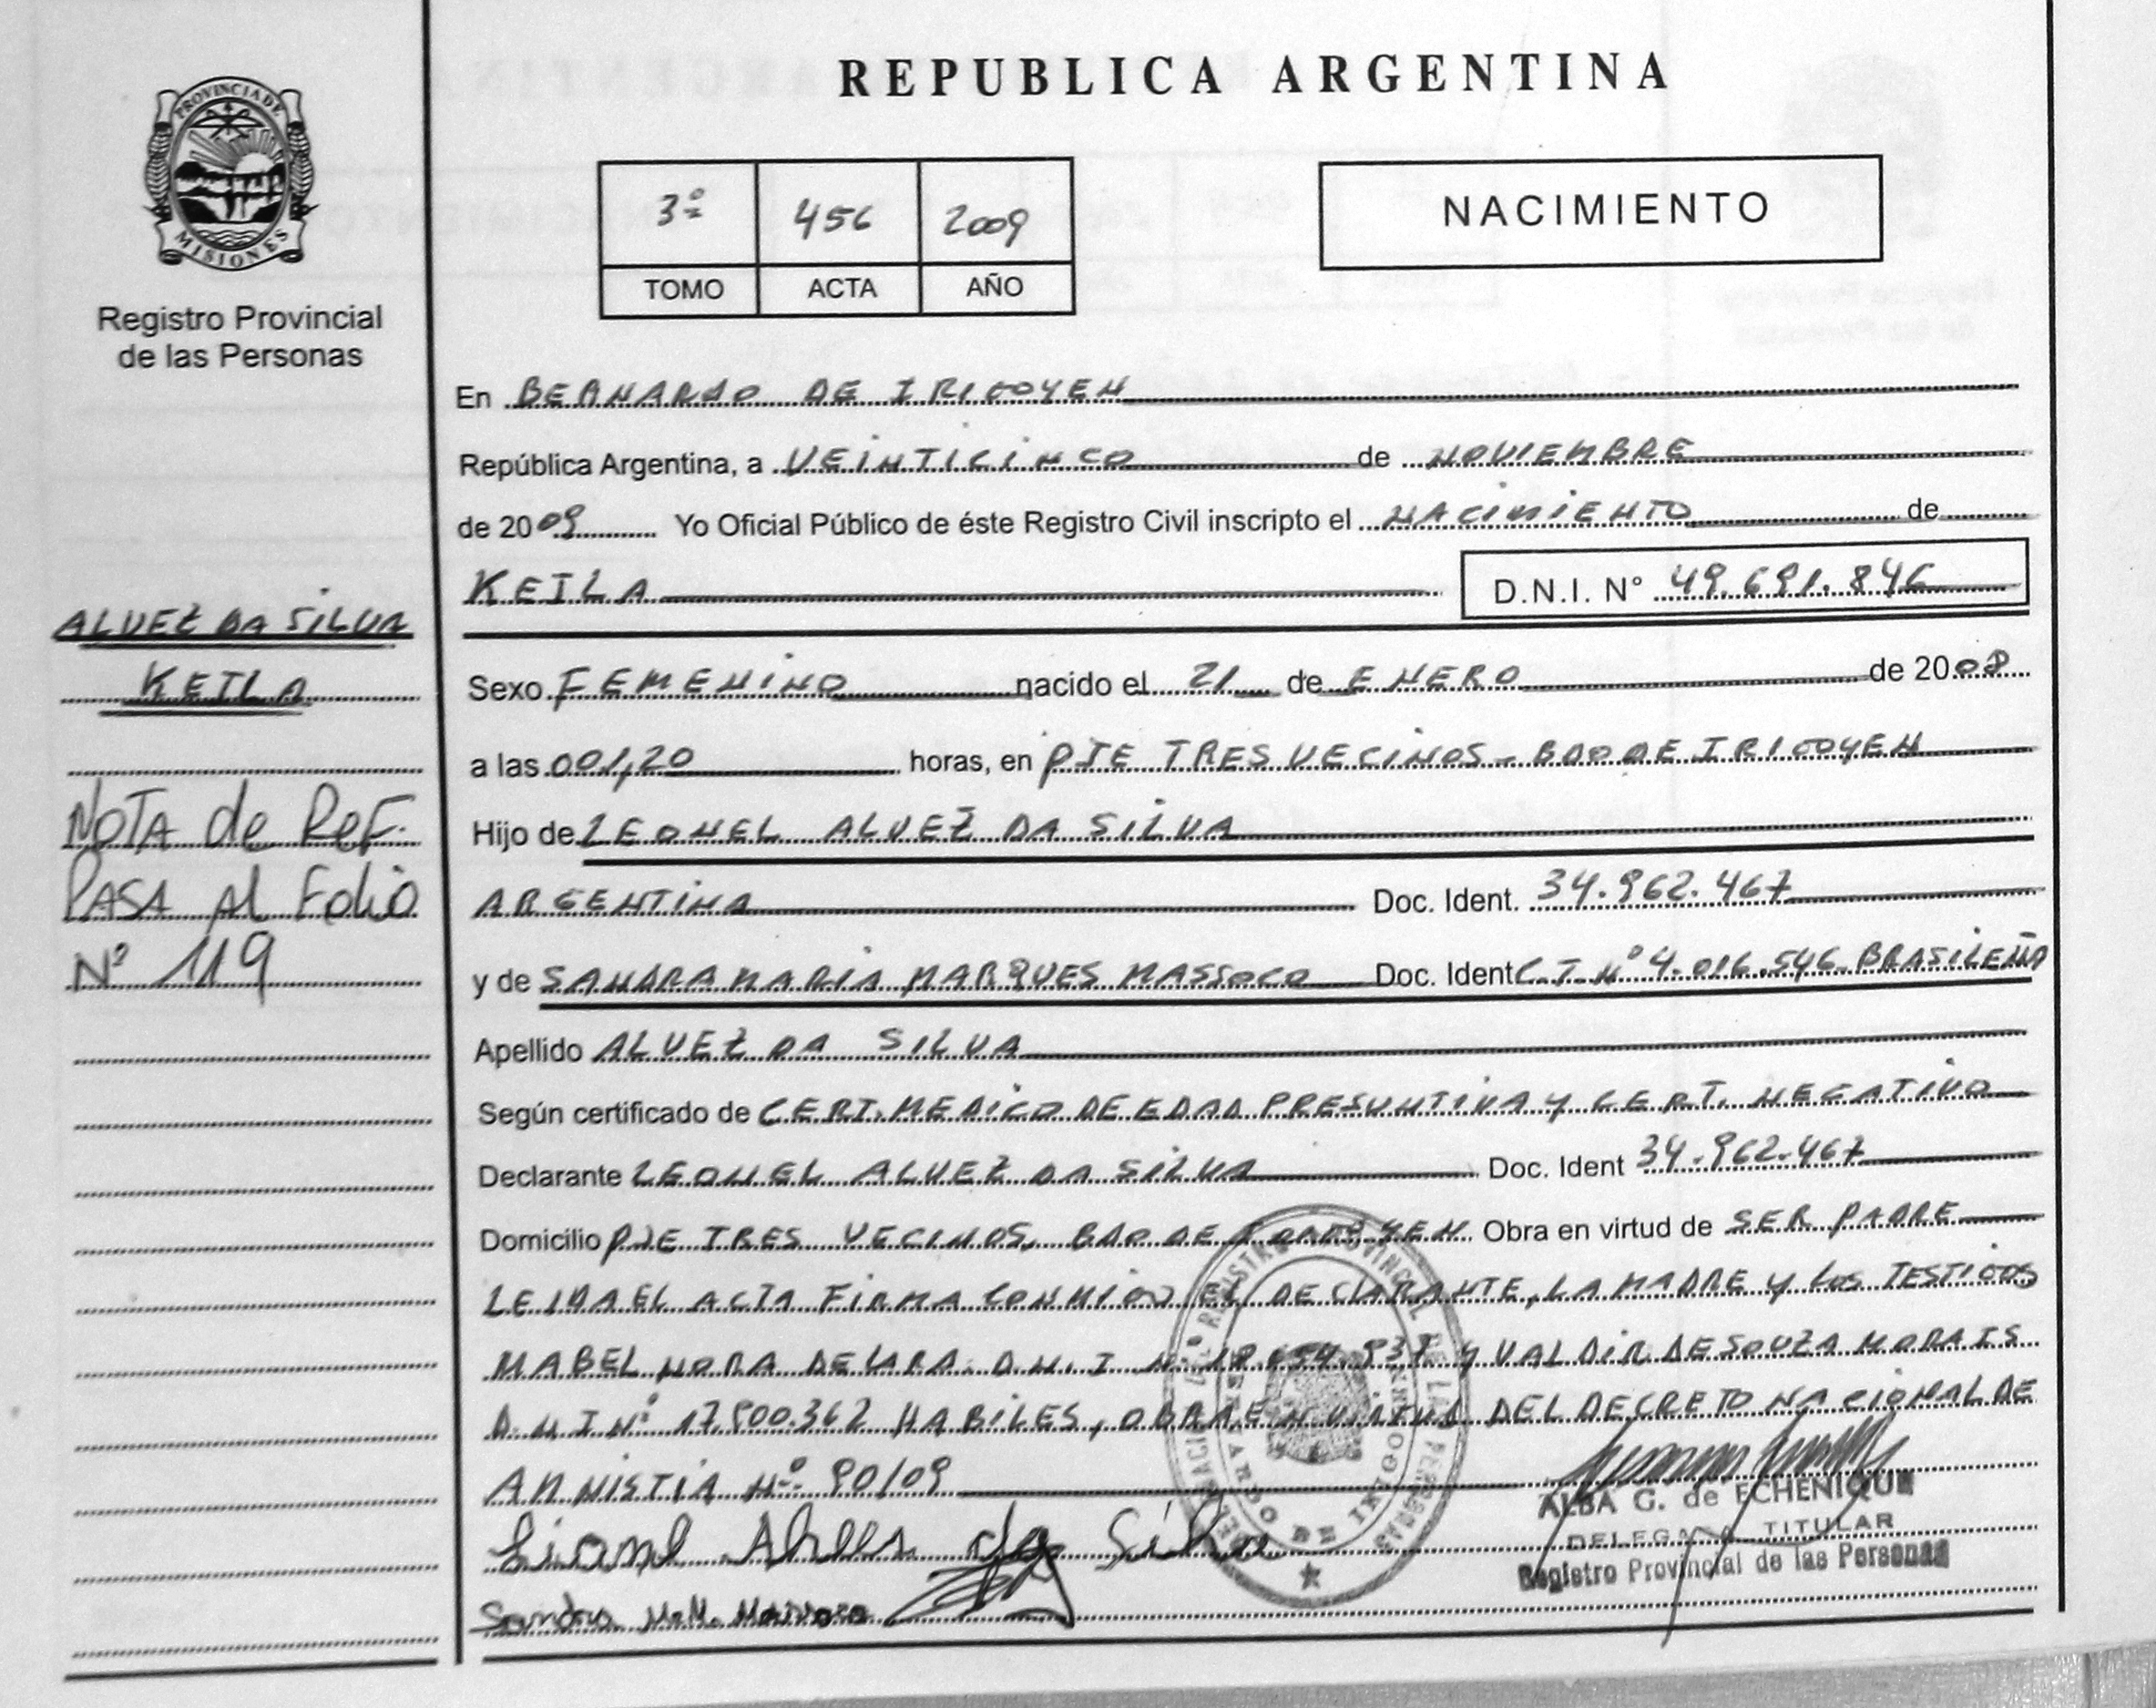 REPUBLICA ARGENTINA
PROVINCIA DE
MISIONES
Registro Provincial
de las Personas
3º 456 2009
TOMO ACTA AÑO
NACIMIENTO
En BERNARDO DE IRIGOYEN
República Argentina, a VEINTICINCO de NOVIEMBRE
de 2009 Yo Oficial Público de éste Registro Civil inscripto el NACIMIENTO de
KEILA D.N.I. N° 49.691.846
ALVEZ DA SILVA
KEILA
Sexo FEMENINO nacido el 21 de ENERO de 2008
a las 001,20 horas, en PJE TRES VECINOS - BDO DE IRIGOYEN
NOTA de REF.
PASA Al Folio
Nº 119
Hijo de LEONEL ALVEZ DA SILVA
ARGENTINA Doc. Ident. 34.962.467
y de SANDRA MARIA MARQUES MASSOCO Doc. Ident C.I. Nº 4.016.546 BRASILEÑA
Apellido ALVEZ DA SILVA
Según certificado de CERT. MEDICO DE EDAD PRESUNTIVA Y CERT. NEGATIVO
Declarante LEONEL ALVEZ DA SILVA Doc. Ident 34.962.467
Domicilio PJE TRES VECINOS, BDO DE IRIGOYEN Obra en virtud de SER PADRE
LEIDA EL ACTA FIRMA CONMIGO EL DECLARANTE, LA MADRE Y LOS TESTIGOS
MABEL NORA DE LARA D.N.I Nº 18.654.937 Y VALDIR DE SOUZA MORAIS
D.N.I Nº 17.800.362 HABILES, OBRA EN VIRTUD DEL DECRETO NACIONAL DE
AMNISTIA Nº 90/09
ALBA G. de ECHENIQUE
DELEGADA TITULAR
Registro Provincial de las Personas
Alves da Silva
Sandra M.M.